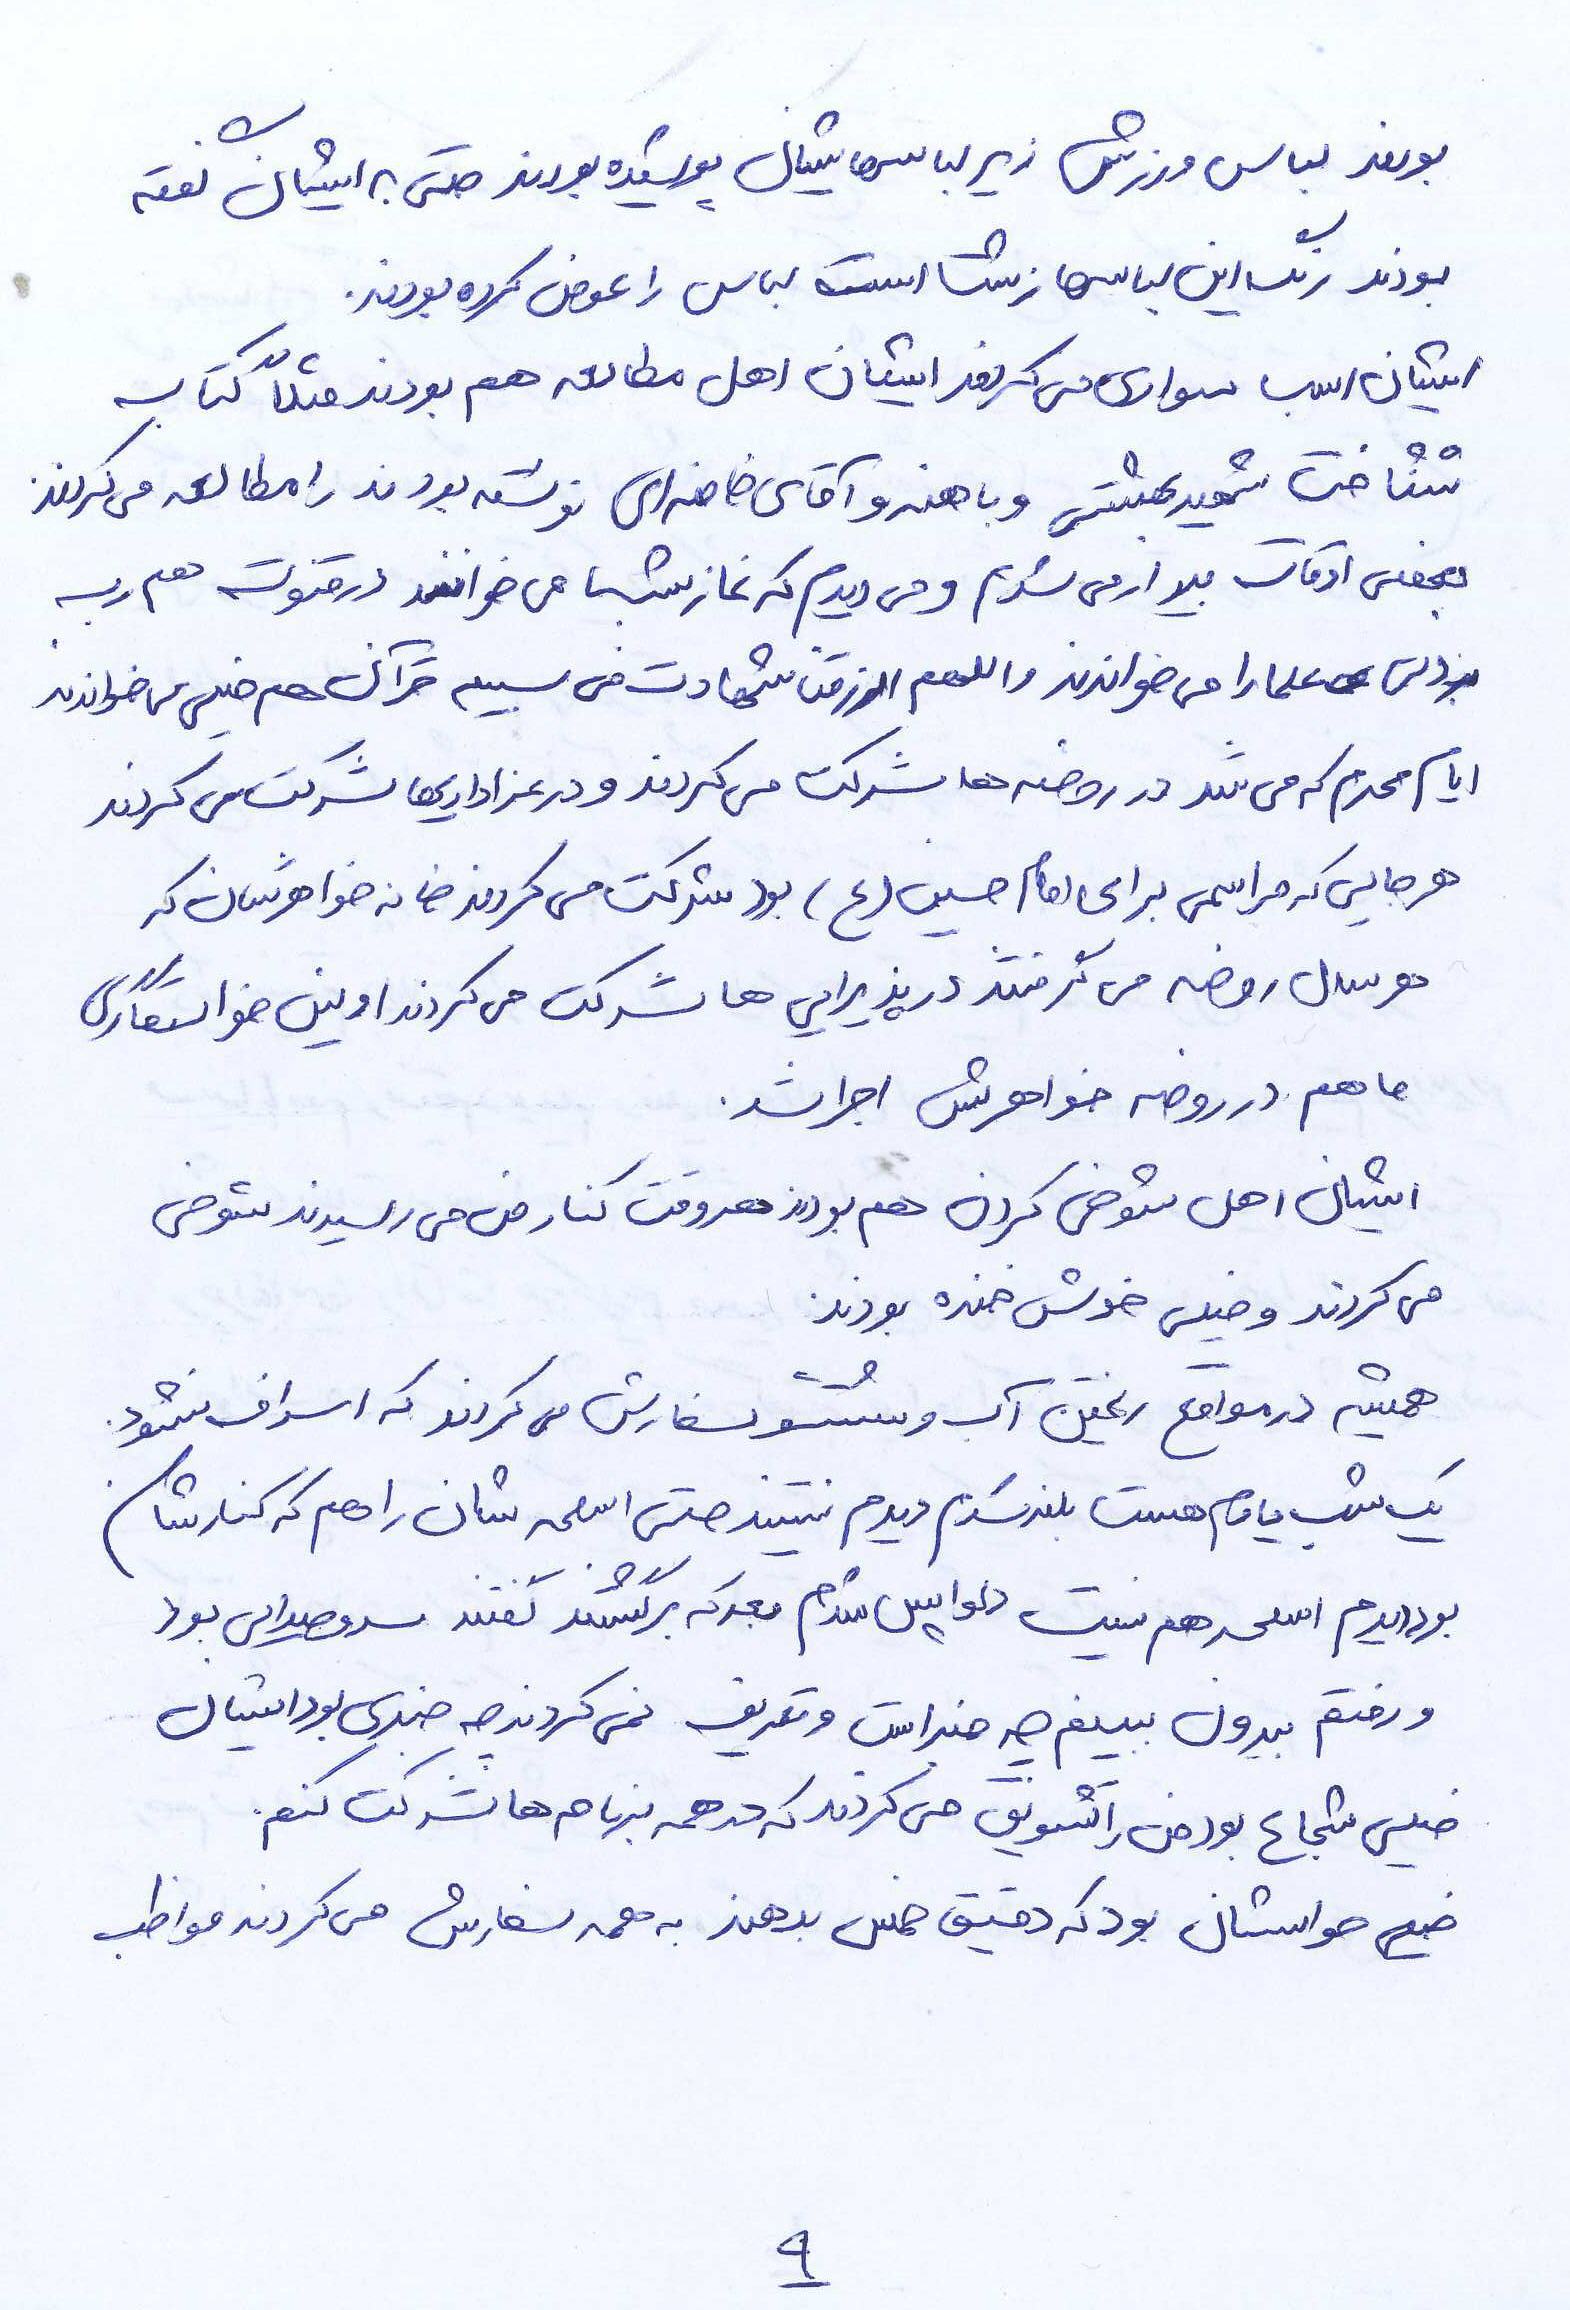 بودند لباس ورزش زیر لباسهایشان پوشیده بودند حتی به ایشان گفته
بودند رنگ این لباسها زشت است لباس را عوض کرده بودند.
ایشان اسب سواری می کردند ایشان اهل مطالعه هم بودند مثلاً کتاب
شناخت شهید بهشتی و باهنر و آقای خامنه ای نوشته بودند را مطالعه می کردند
بعضی اوقات بیدار می شدم و می دیدم که نماز شب می خوانند در قنوت هم رب
زدنی علما را می خواندند و اللهم ارزقنا شهادت فی سبیله قرآن هم خیلی می خواندند
ایام محرم که می شد در روضه ها شرکت می کردند و در عزاداریها شرکت می کردند
هر جایی که مراسمی برای امام حسین (ع) بود شرکت می کردند خانه خواهرشان که
هر سال روضه می گرفتند در پذیرایی ها شرکت می کردند اولین خواستگاری
ما هم در روضه خواهرش اجرا شد.
ایشان اهل شوخی کردن هم بودند هر وقت کنار من می رسیدند شوخی
می کردند و خیلی خوش خنده بودند.
همیشه در مواقع ریختن آب و شستشو سفارش می کردند که اسراف نشود.
یک شب یادم هست بلند شدم دیدم نیستند حتی اسلحه شان را هم که کنارشان
بود دیدم اسلحه هم نیست دلواپس شدم بعد که برگشتند گفتند سر و صدایی بود
و رفتم بیرون ببینم چه خبر است و تعریف نمی کردند چه خبری بود ایشان
خیلی شجاع بود من را تشویق می کردند که در همه برنامه ها شرکت کنم.
خیلی حواسشان بود که دقیق خمس بدهند به همه سفارش می کردند مواظب
۹